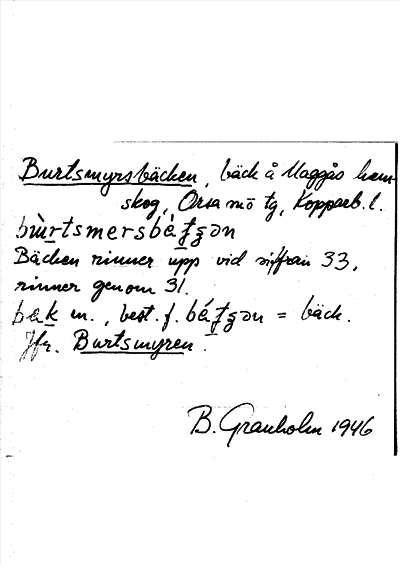 Burtsmyrsbäcken, bäck å Maggås hem-
skog, Orsa
Kopparb. l.
Bäcken rinner upp vid siffran 33,
rinner genom 31.
bæk m., best. f. = bäck.
Jfr. Burtsmyren.
B. Granholm 1946